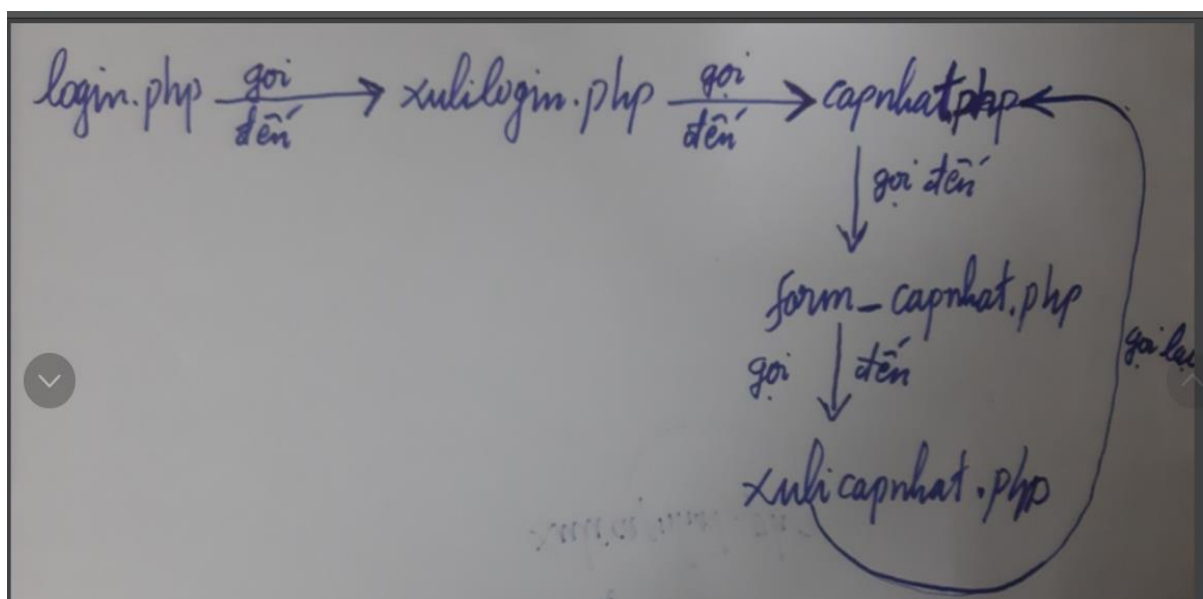 login.php gọi đến xulilogin.php gọi đến capnhat.php
gọi đến
form_capnhat.php
gọi đến
gọi lại
xulicapnhat.php